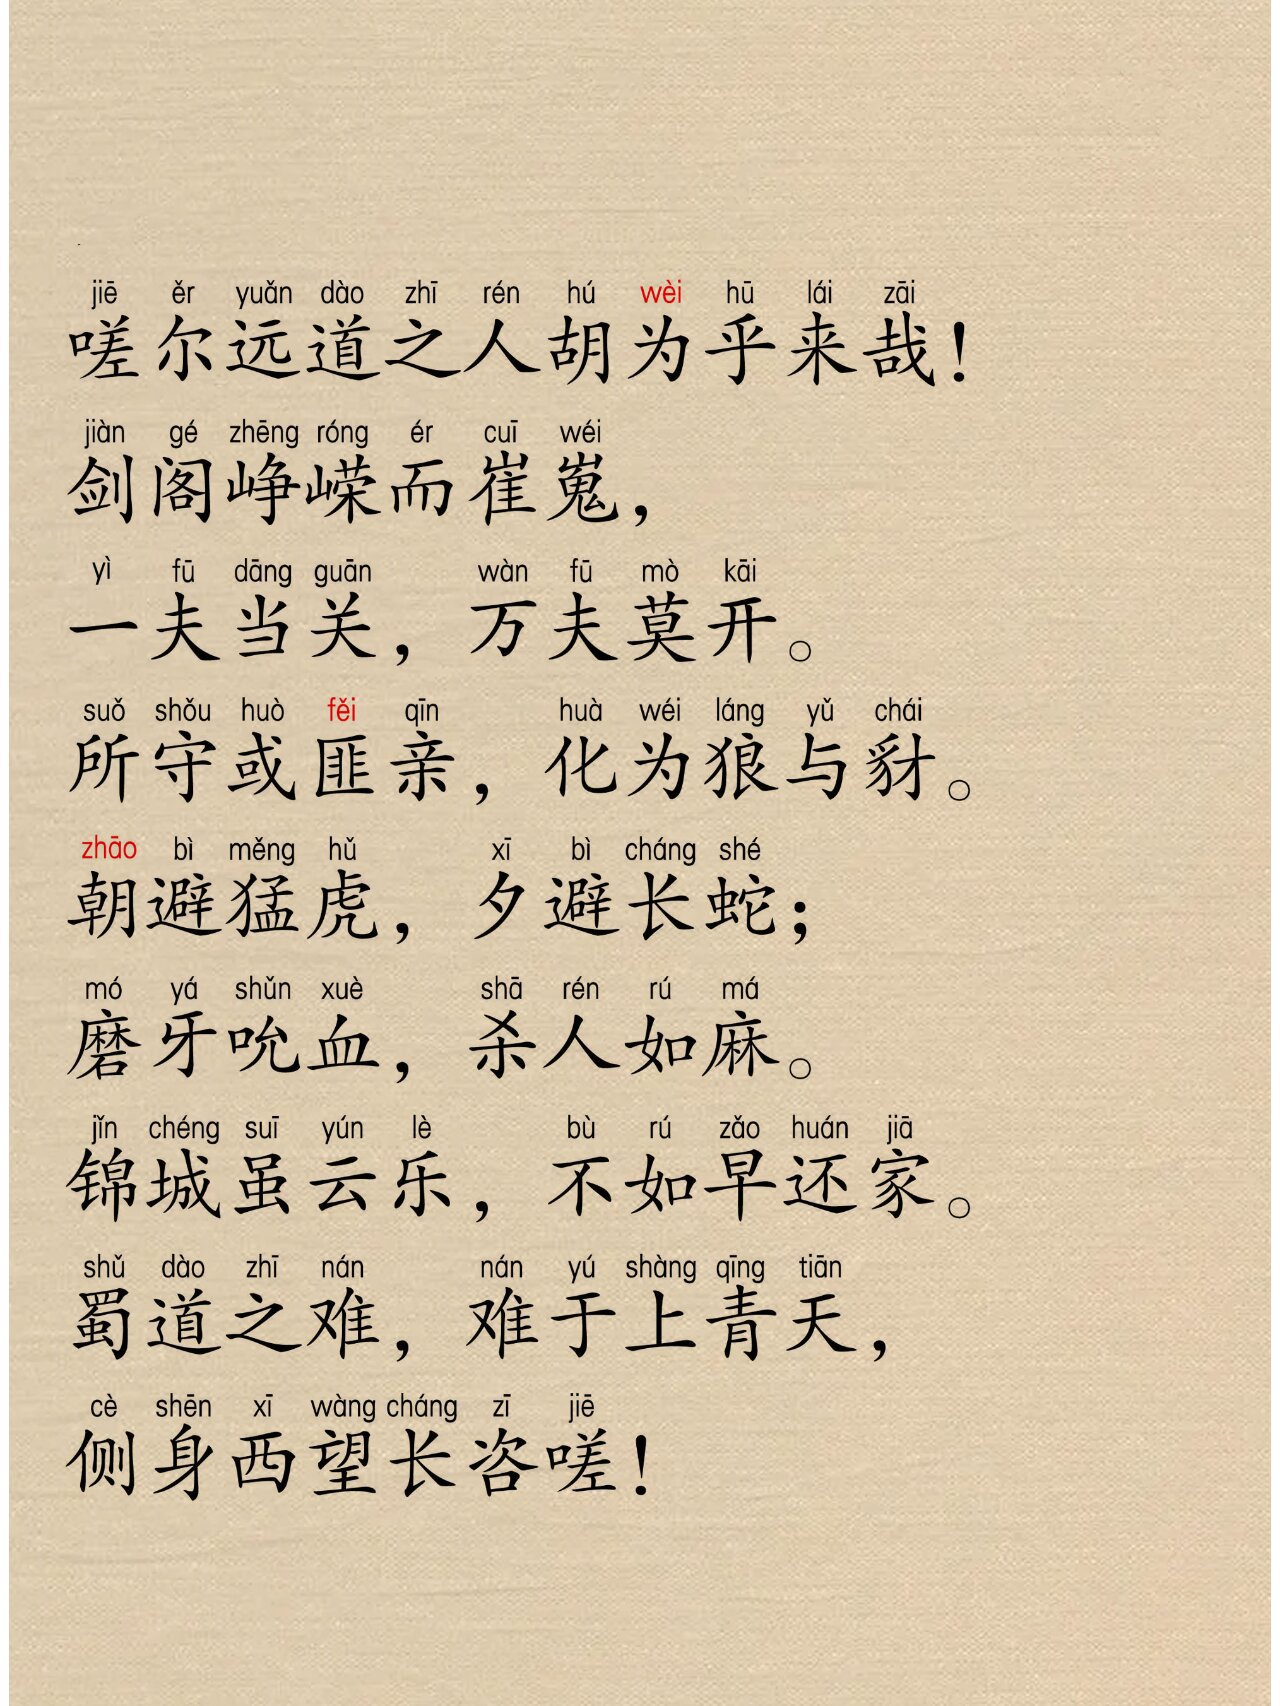 jiē ěr yuǎn dào zhī rén hú wèi hū lái zāi
嗟尔远道之人胡为乎来哉！
jiàn gé zhēng róng ér cuī wéi
剑阁峥嵘而崔嵬，
yì fū dāng guān wàn fū mò kāi
一夫当关，万夫莫开。
suǒ shǒu huò fěi qīn huà wéi láng yǔ chái
所守或匪亲，化为狼与豺。
zhāo bì měng hǔ xī bì cháng shé
朝避猛虎，夕避长蛇；
mó yá shǔn xuè shā rén rú má
磨牙吮血，杀人如麻。
jǐn chéng suī yún lè bù rú zǎo huán jiā
锦城虽云乐，不如早还家。
shǔ dào zhī nán nán yú shàng qīng tiān
蜀道之难，难于上青天，
cè shēn xī wàng cháng zī jiē
侧身西望长咨嗟！